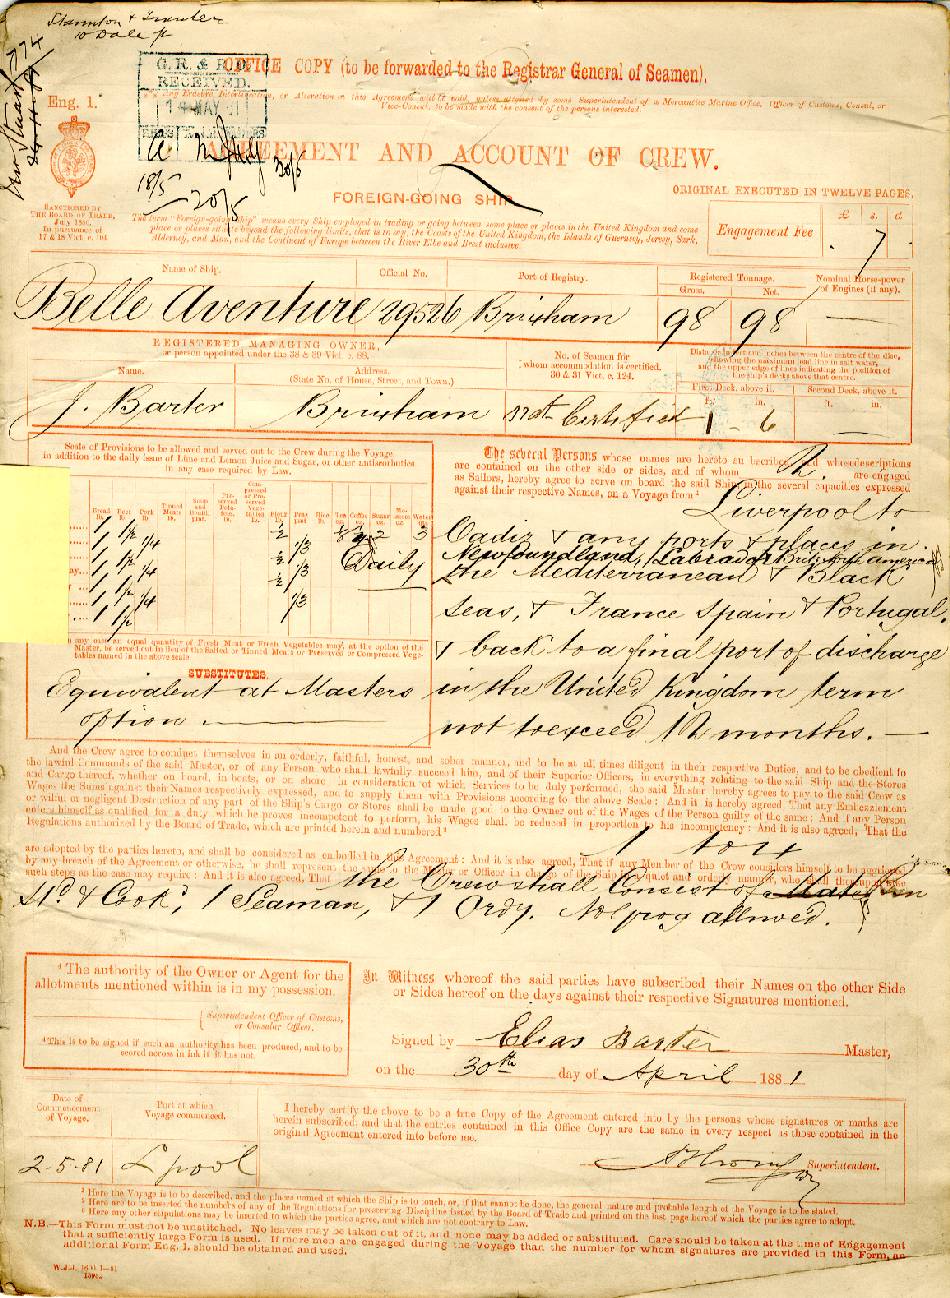 774
G. R. & F. D.
RECEIVED.
MAY
OFFICE COPY (to be forwarded to the Registrar General of Seamen).
Eng. 1.
18/5
20/5
20/5
AGREEMENT AND ACCOUNT OF CREW.
FOREIGN-GOING SHIP
ORIGINAL EXECUTED IN TWELVE PAGES.
SANCTIONED BY
THE BOARD OF TRADE,
In pursuance of
17 & 18 Vict. c. 104
The term "Foreign-going Ship" means every Ship employed in trading or going between some place or places in the United Kingdom and some
place or places situate beyond the following limits, that is to say, the Coasts of the United Kingdom, the Islands of Guernsey, Jersey, Sark,
Alderney, and Man, and the Continent of Europe between the River Elbe and Brest inclusive.
£ s. d.
Engagement Fee . 7
Name of Ship. Official No. Port of Registry. Registered Tonnage. Nominal Horse-power
Gross. Net. of Engines (if any).
Belle Aventure 29526 Brixham 98 98
REGISTERED MANAGING OWNER,
or person appointed under the 38 & 39 Vict. c. 88.
Name. Address.
(State No. of House, Street, and Town.)
No. of Seamen for
whom accommodation is certified.
30 & 31 Vict. c. 124.
First Deck, above it. Second Deck, above it.
J. Barter Brixham Not Certified 1 - 6
Scale of Provisions to be allowed and served out to the Crew during the Voyage
in addition to the daily issue of Lime and Lemon Juice and Sugar, or other antiscorbutics
in any case required by Law.
Daily
The several Persons whose names are hereto subscribed, and whose descriptions
are contained on the other side or sides, and of whom are engaged
as Sailors, hereby agree to serve on board the said Ship, in the several capacities expressed
against their respective Names, on a Voyage from
Liverpool to
Cadiz & any ports & places in
Newfoundland, Labrador
the Mediterranean & Black
Seas, & France Spain & Portugal,
& back to a final port of discharge
in the United Kingdom term
not to exceed 12 months.
SUBSTITUTES.
Equivalent at Masters
option
And the Crew agree to conduct themselves in an orderly, faithful, honest, and sober manner, and to be at all times diligent in their respective Duties, and to be obedient to
the lawful commands of the said Master, or of any Person who shall lawfully succeed him, and of their Superior Officers, in everything relating to the said Ship and the Stores
and Cargo thereof, whether on board, in boats, or on shore. In consideration of which Services to be duly performed, the said Master hereby agrees to pay to the said Crew as
Wages the Sums against their Names respectively expressed, and to supply them with Provisions according to the above Scale: And it is hereby agreed, That any Embezzlement
or wilful or negligent Destruction of any part of the Ship's Cargo or Stores shall be made good to the Owner out of the Wages of the Person guilty of the same: And if any Person
enters himself as qualified for a duty which he proves incompetent to perform, his Wages shall be reduced in proportion to his incompetency: And it is also agreed, That the
Regulations authorized by the Board of Trade, which are printed herein and numbered
1 to 4
are adopted by the parties hereto, and shall be considered as embodied in this Agreement: And it is also agreed, That if any Member of the Crew considers himself to be aggrieved
by any breach of the Agreement or otherwise, he shall represent the same to the Master or Officer in charge of the Ship in a quiet and orderly manner, who shall thereupon take
such steps as the case may require: And it is also agreed, That
the Crew shall Consist of
& Cook, 1 Seaman, & 1 Ordy. No grog allowed.
The authority of the Owner or Agent for the
allotments mentioned within is in my possession.
Superintendent Officer of Customs,
or Consular Officer.
This is to be signed if such an authority has been produced, and to be
scored across in ink if it has not.
In Witness whereof the said parties have subscribed their Names on the other Side
or Sides hereof on the days against their respective Signatures mentioned.
Signed by Elias Barter Master,
on the 30th day of April 1881
Date of
Commencement
of Voyage.
Port at which
Voyage commenced.
2-5-81 L'pool
I hereby certify the above to be a true Copy of the Agreement entered into by the persons whose signatures or marks are
herein subscribed, and that the entries contained in this Office Copy are the same in every respect as those contained in the
original Agreement entered into before me.
Superintendent.
Here the Voyage is to be described, and the places named at which the Ship is to touch, or, if that cannot be done, the general nature and probable length of the Voyage is to be stated.
Here are to be inserted the numbers of any of the Regulations for preserving Discipline issued by the Board of Trade and printed on the last page hereof which the parties agree to adopt.
Here any other stipulations may be inserted to which the parties agree, and which are not contrary to Law.
N.B.—This Form must not be unstitched. No leaves may be taken out of it, and none may be added or substituted. Care should be taken at the time of Engagement
that a sufficiently large Form is used. If more men are engaged during the Voyage than the number for whom signatures are provided in this Form, an
additional Form Eng. 1. should be obtained and used.